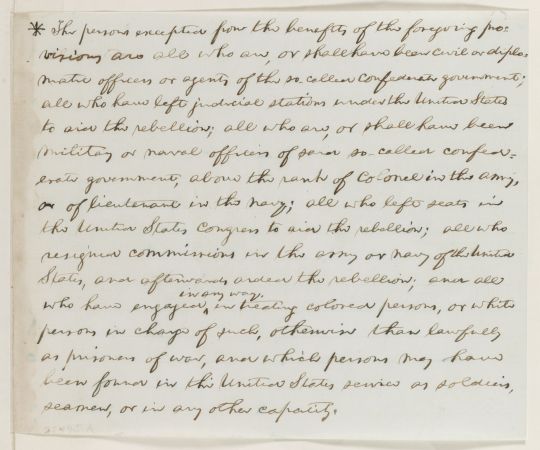 * The persons excepted from the benefits of the foregoing pro-
visions are all who are, or shall have been civil or diplo-
matic officers or agents of the so-called Confederate government;
all who have left judicial stations under the United States
to aid the rebellion; all who are, or shall have been
military or naval officers of said so-called confed-
erate government, above the rank of Colonel in the army,
or of lieutenant in the navy; all who left seats in
the United States Congress to aid the rebellion; all who
resigned commissions in the army or navy of the United
States, and afterwards aided the rebellion; and all
in any way,
who have engaged ^ in treating colored persons, or white
persons in charge of such, otherwise than lawfully
as prisoners of war, and which persons may have
been found in the United States service as soldiers,
seamen, or in any other capacity.